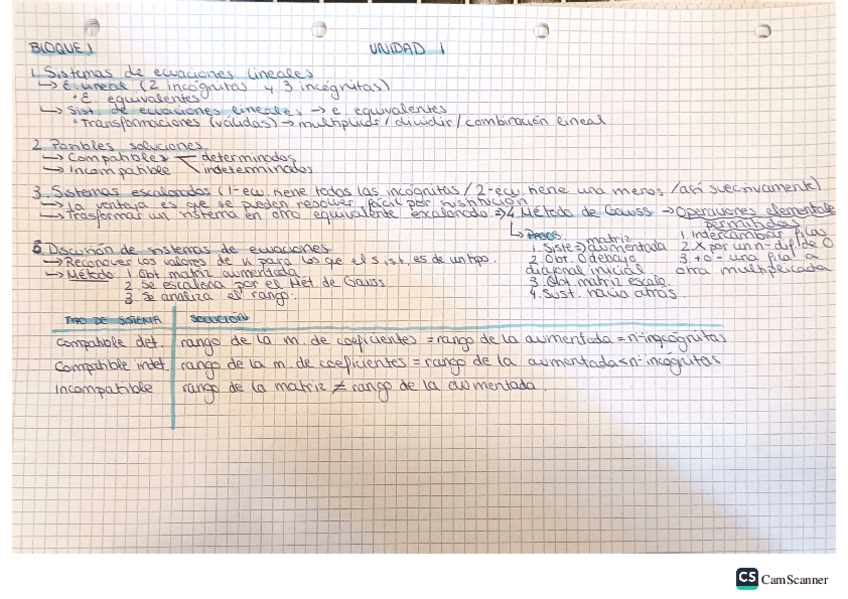 BLOQUE 1 UNIDAD 1
1. Sistemas de ecuaciones lineales
→ E. lineal (2 incógnitas y 3 incógnitas)
• E. equivalentes
→ Sist. de ecuaciones lineales → e. equivalentes
• Transformaciones (válidas) → multiplicar / dividir / combinación lineal
2. Posibles soluciones
→ Compatibles determinados
→ Incompatible indeterminados
3. Sistemas escalonados (1-ecu. tiene todas las incógnitas / 2-ecu. tiene una menos / así sucesivamente)
→ La ventaja es que se pueden resolver fácil por sustitución
→ Trasformar un sistema en otro equivalente escalonado. ⇒ 4. Método de Gauss → Operaciones elementales permitidas
↳ Pasos
1. Siste ⇒ matriz aumentada
2. Obt. 0 debajo
diagonal inicial
3. Obt matriz escalo.
4. Sust. hacia atrás.
1. Intercambiar filas
2. X por un n- dif de 0
3. + o - una fila a
otra multiplicada
5. Discusión de sistemas de ecuaciones
→ Reconocer los valores de k para los que el sist. es de un tipo.
→ Método: 1 Obt matriz aumentada
2 Se escalona por el Met. de Gauss
3 Se analiza el rango.
TIPO DE SISTEMA SOLUCIÓN
Compatible det. rango de la m. de coeficientes = rango de la aumentada = n- incógnitas
Compatible indet. rango de la m. de coeficientes = rango de la aumentada < n- incógnitas
Incompatible rango de la matriz ≠ rango de la aumentada.
CS CamScanner